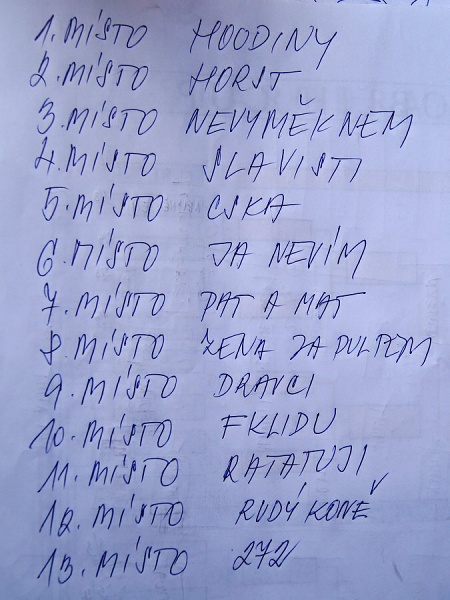 1. MÍSTO HOODINY
2. MÍSTO HORST
3. MÍSTO NEVYMĚKNEM
4. MÍSTO SLAVISTI
5. MÍSTO CSKA
6. MÍSTO JA NEVÍM
7. MÍSTO PAT A MAT
8. MÍSTO ŽENA ZA PULTEM
9. MÍSTO DRAVCI
10. MÍSTO FKLIDU
11. MÍSTO RATATUJI
12. MÍSTO RUDÝ KONĚ
13. MÍSTO 272